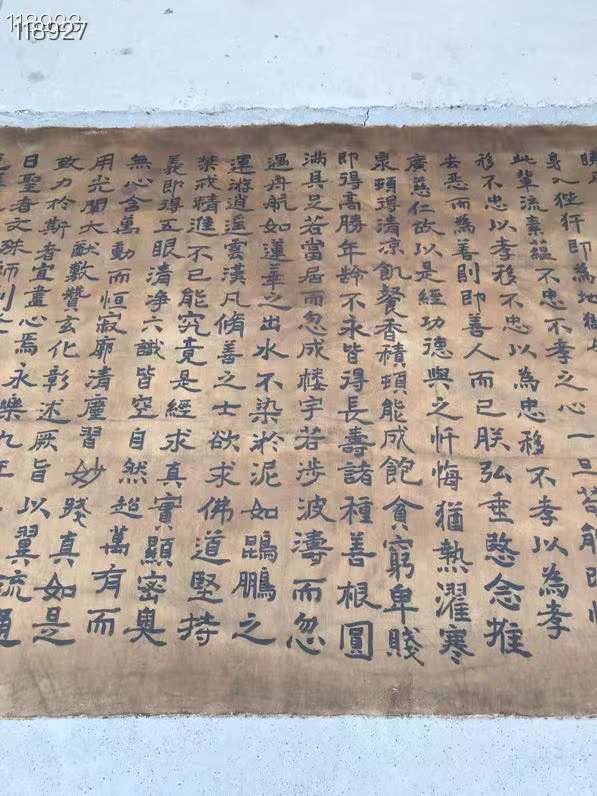 118927
身入狴犴即為地獄
此輩流素蘊不忠不孝之心一旦若能即
移不忠以孝移不忠以為忠移不孝以為孝
去惡而為善則即善人而已朕弘垂愍念推
廣慈仁故以是經功德與之忏悔猶熱濯寒
泉頓得清凉飢餐香積頓能成飽貧窮卑賤
即得高勝年龄不永皆得長壽諸種善根圓
滿具足若當居而忽成樓宇若涉波濤而忽
遇舟航如蓮華之出水不染淤泥如鵾鵬之
運游逍遥雲漢凡脩善之士欲求佛道堅持
禁戒精進不已能究竟是經求真實顯密奥
義即得五眼清净六識皆空自然超萬有而
無心含萬動而恒寂廓清塵習妙踐真如是
用光闡大猷敷贊玄化彰述厥旨以翼流通
致力於斯者宜盡心焉永樂九年
日聖者文殊師利